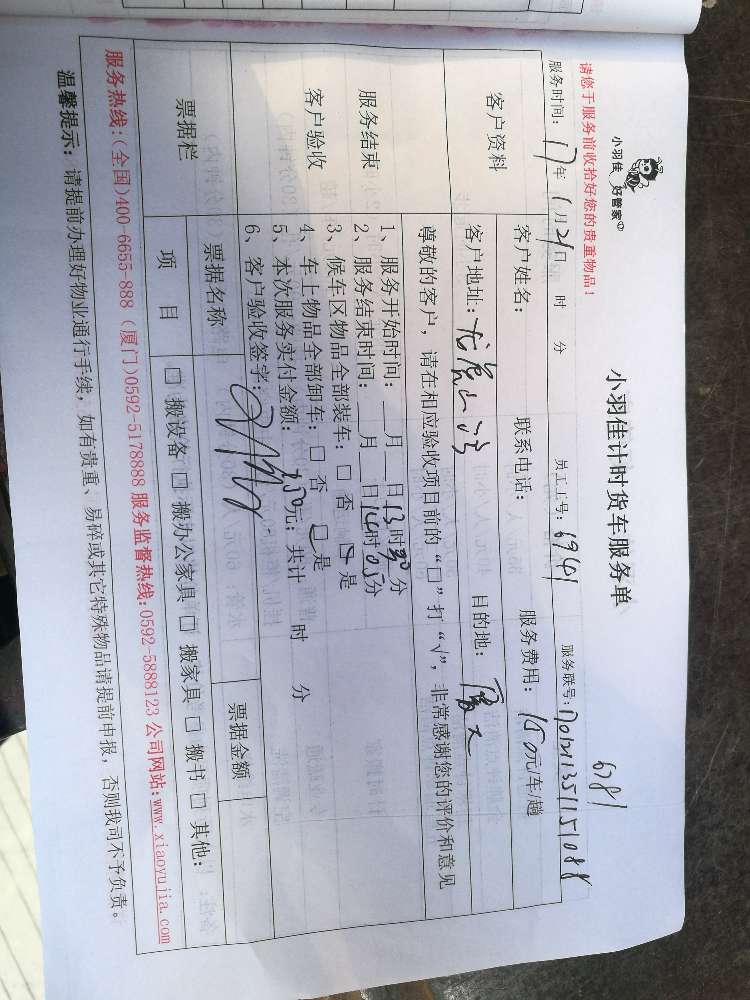 小羽佳 好管家
小羽佳计时货车服务单
6781
请您于服务前收拾好您的贵重物品!
服务时间: 17年 1月21日 时 分 员工工号: 6941 服务联号:
客户资料 客户姓名: 联系电话: 服务费用: 150元/车/趟
客户地址: 目的地: 厦大
尊敬的客户,请在相应验收项目前的“□”打“√”,非常感谢您的评价和意见
服务结束
客户验收
1、服务开始时间: 月 日13时30分
2、服务结束时间: 月 日14时05分
3、候车区物品全部装车: □ 否 □ 是
4、车上物品全部卸车: □ 否 □ 是
5、本次服务实付金额: 350元; 共计 时 分
6、客户验收签字:
票据栏 票据名称 票据金额
项 目 □ 搬设备 □ 搬办公家具 □ 搬家具 □ 搬书 □ 其他:
服务热线:(全国)400-6655-888 (厦门)0592-5178888 服务监督热线:0592-5888123 公司网站:www.xiaoyujia.com
温馨提示: 请提前办理好物业通行手续,如有贵重、易碎或其它特殊物品请提前申报,否则我司不予负责。